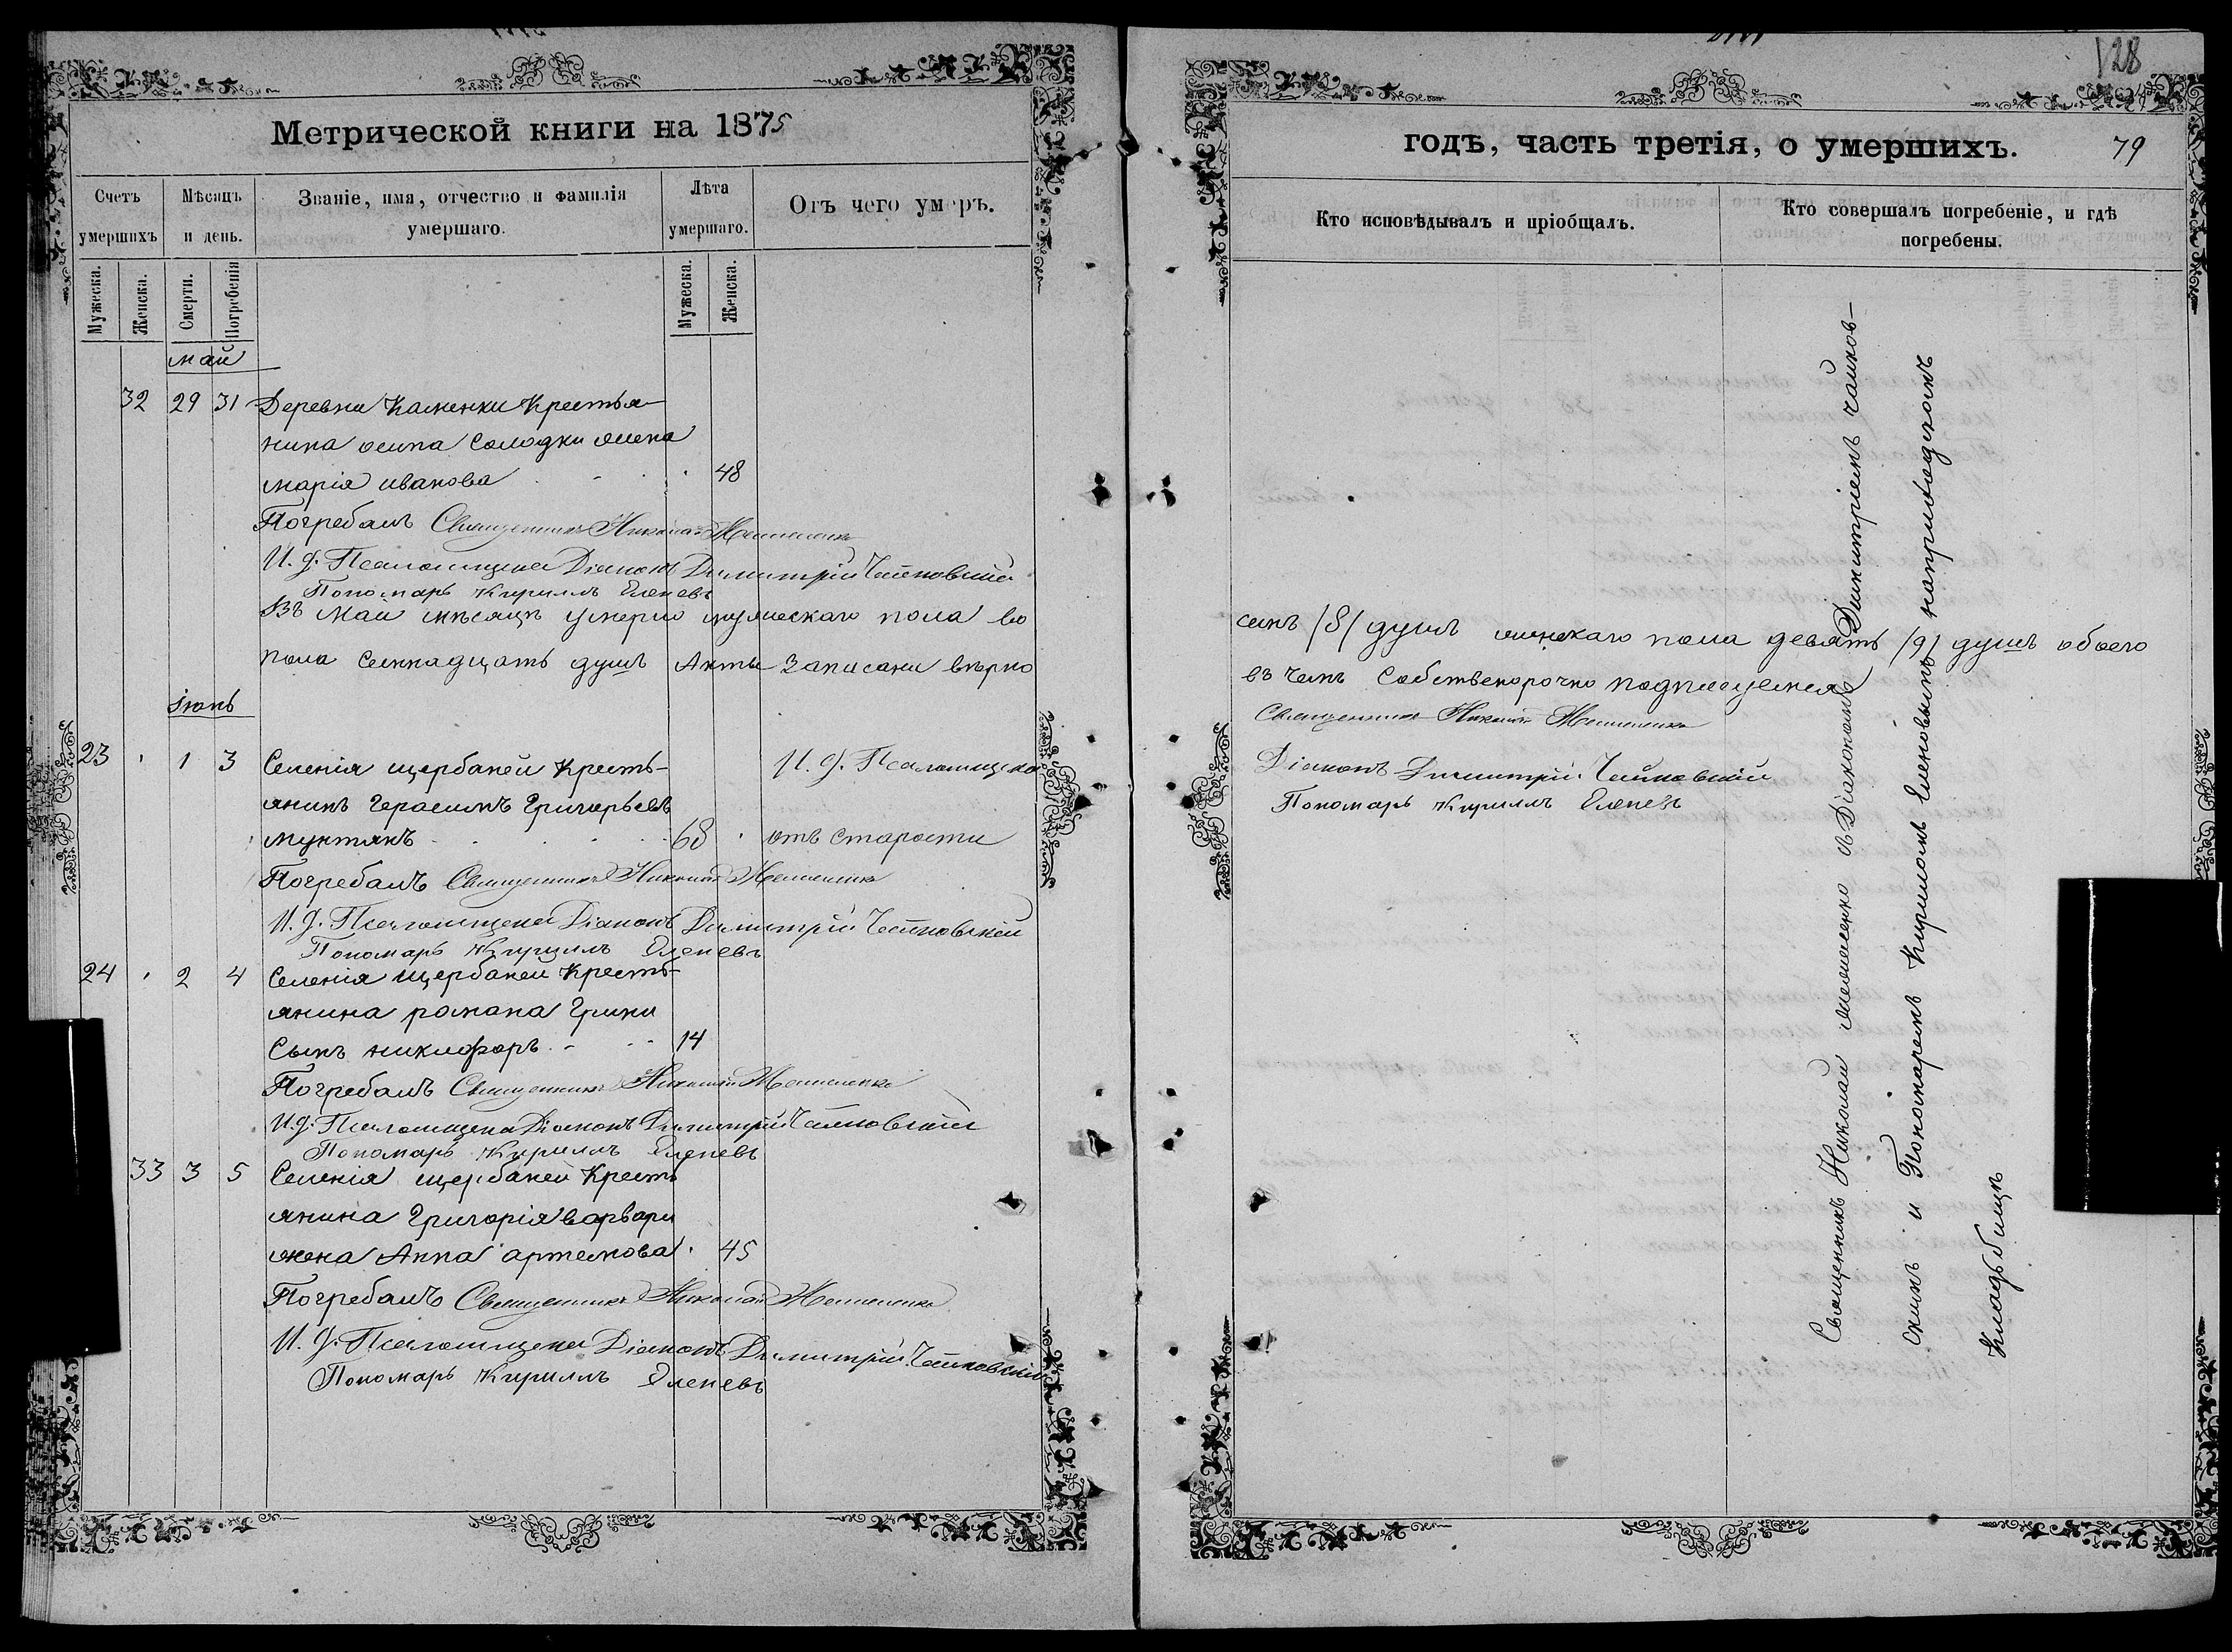 Метрической книги на 1875
Счетъ умершихъ
Мѣсяцъ и день.
Званіе, имя, отчество и фамилія умершаго.
Лѣта умершаго.
Отъ чего умеръ.
Мужеска.
Женска.
Смерти.
Погребенія
Мужеска.
Женска.
май
32 29 31 Деревни Каменки Крестья-
нина осипа Солодки жена
марія иванова 48
Погребалъ Священникъ Николай
И. д. Псаломщика Діаконъ Димитрій Чайковскій
Пономарь Кириллъ Еленевъ
Въ Маи мѣсяцѣ умерло мужескаго пола во
пола семнадцать душъ Акты записани вѣрно
іюнь
23 1 3 Селенія щербаней Кресть- И. д. Псаломщика
янинъ Герасимъ Григорьевъ
мунтянъ 68 отъ старости
Погребалъ Священникъ Николай
И. д. Псаломщика Діаконъ Димитрій Чайковскій
Пономарь Кириллъ Еленевъ
24 2 4 Селенія щербаней Кресть-
янина романа Грики
сынъ никифоръ 14
Погребалъ Священникъ Николай
И. д. Псаломщика Діаконъ Димитрій Чайковскій
Пономарь Кириллъ Еленевъ
33 3 5 Селенія щербаней Кресть
янина Григорія варвари
жена Анна артемова 45
Погребалъ Священникъ Николай
И. д. Псаломщика Діаконъ Димитрій Чайковскій
Пономарь Кириллъ Еленевъ
128
годѣ, часть третія, о умершихъ. 79
Кто исповѣдывалъ и пріобщалъ.
Кто совершалъ погребеніе, и гдѣ погребены.
семъ /8/ душъ женскаго пола девять /9/ душъ обоего
въ чемъ собственорочно подписуемся
Священникъ Николай
Діаконъ Димитрій Чайковскій
Пономарь Кириллъ Еленевъ
Священникъ Николай съ Діакономъ Димитріемъ чайков-
скимъ и Пономаремъ Кириломъ Еленовымъ наприходскомъ
Кладбищѣ